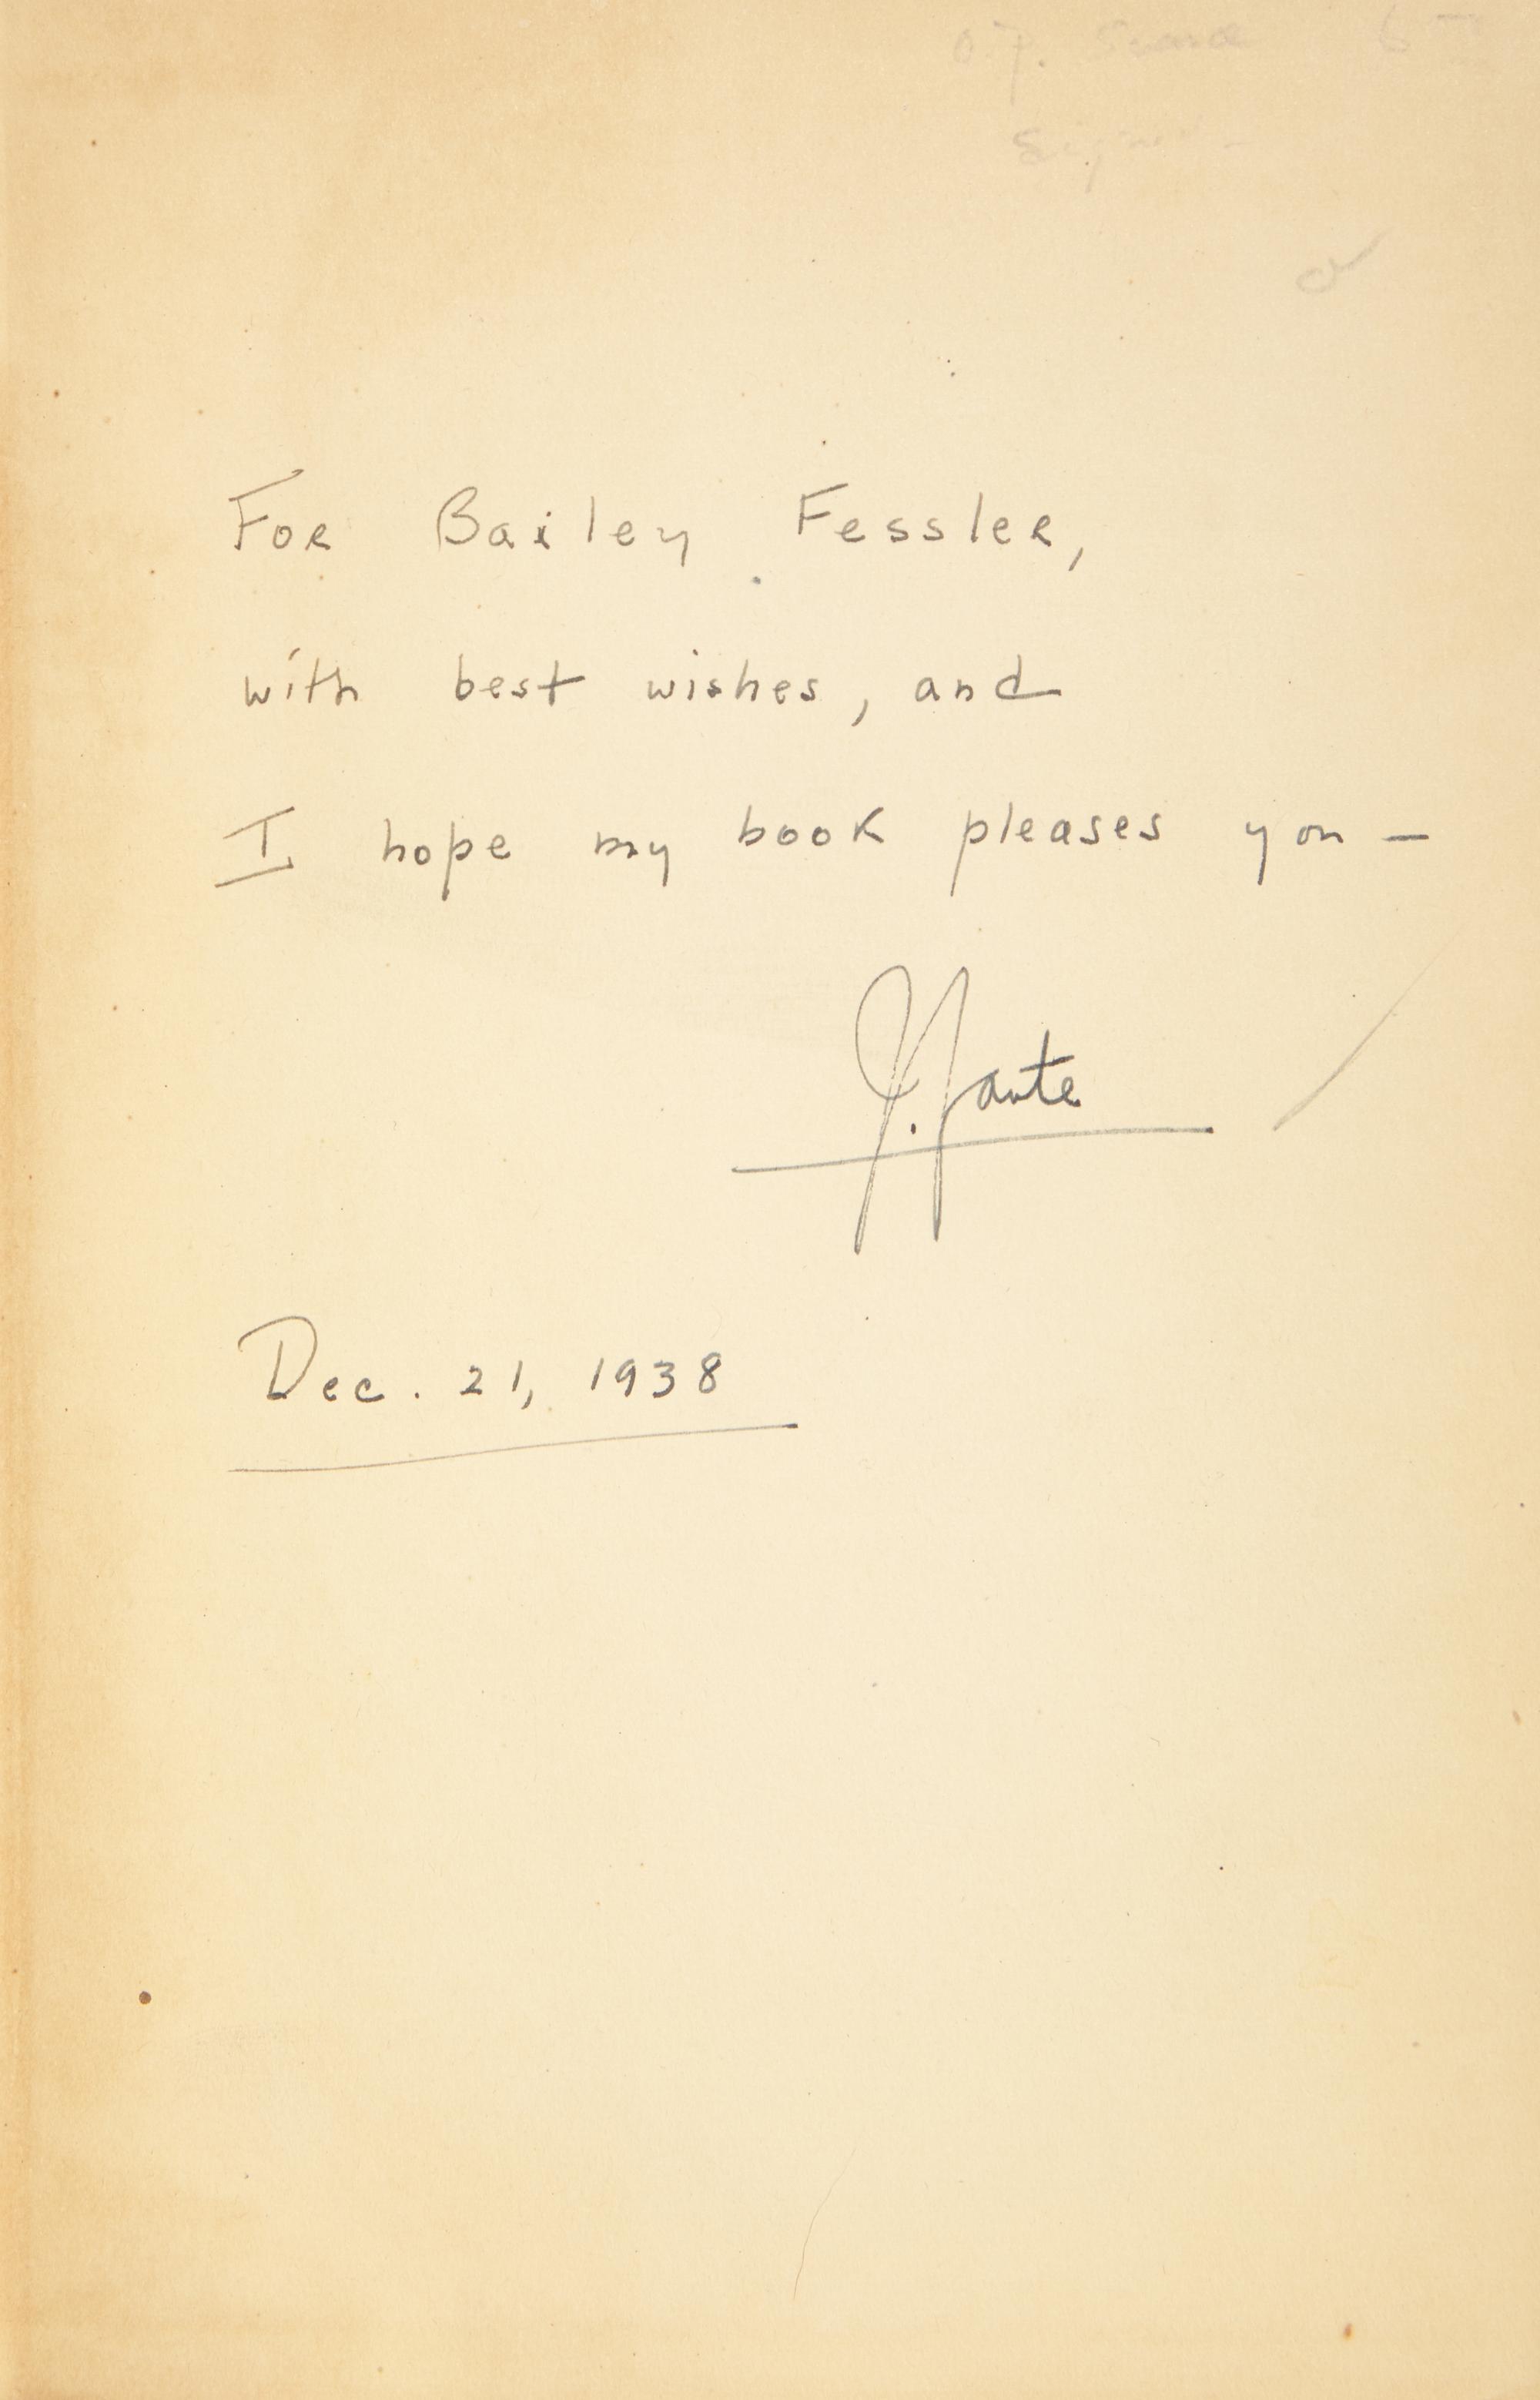 o.p. Scarce 6
Signed -
For Bailey Fessler,
with best wishes, and
I hope my book pleases you —
J. Fante
Dec. 21, 1938